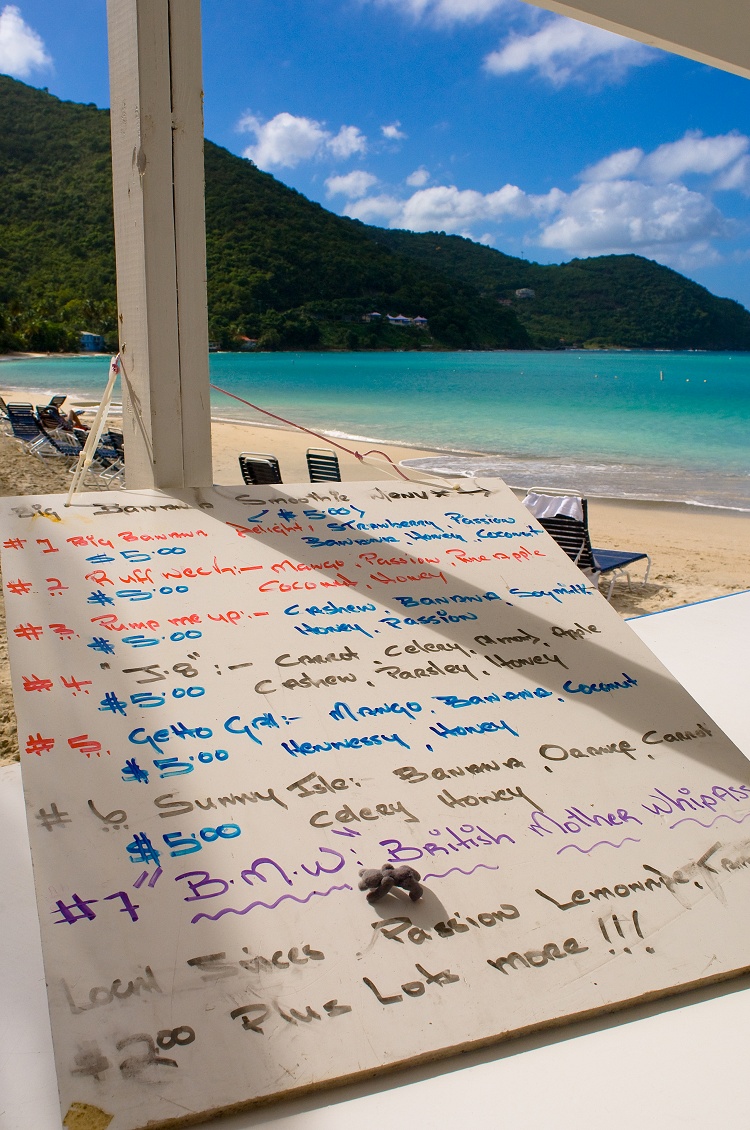 Big Banana Smoothie Menu
($5.00)
#1 Big Banana Delight, Strawberry, Passion
$5.00 Banana, Honey, Coconut
#2 Ruff neck:- Mango, Passion, Pineapple
$5.00 Coconut, Honey
#3 Pump me up:- Cashew, Banana, Soymilk
$5.00 Honey, Passion
#4 "J.8":- Carrot, Celery, Almond, Apple
$5.00 Cashew, Parsley, Honey
#5 Getto Grill:- Mango, Banana, Coconut
$5.00 Hennessy, Honey
#6 Sunny Isle:- Banana, Orange, Carrot
$5.00 Celery Honey
#7 "B.M.W": British Mother WhipAss
Local Juices Passion Lemonade,
$2.00 Plus Lots more!!!